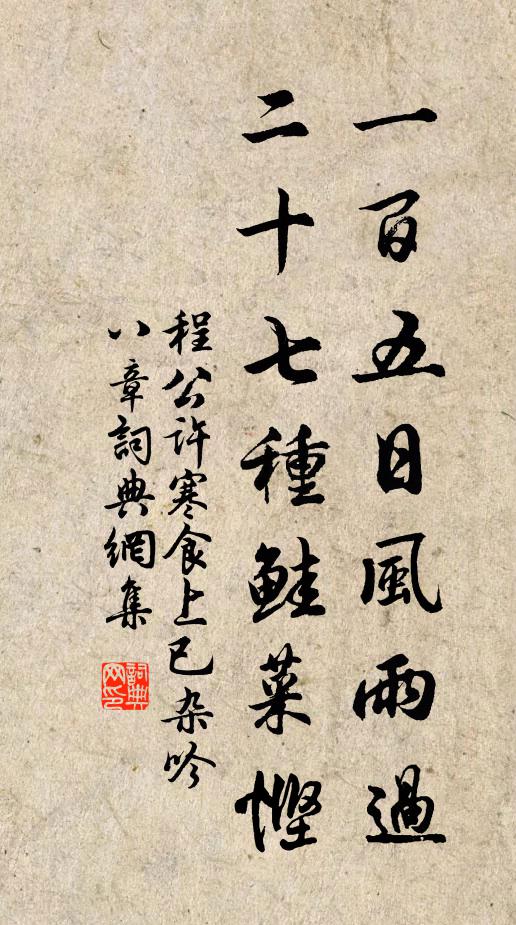 一百五日風雨過
二十七種鮭菜慳
程公许寒食上巳杂吟
八章詞典網集
詞典
网印